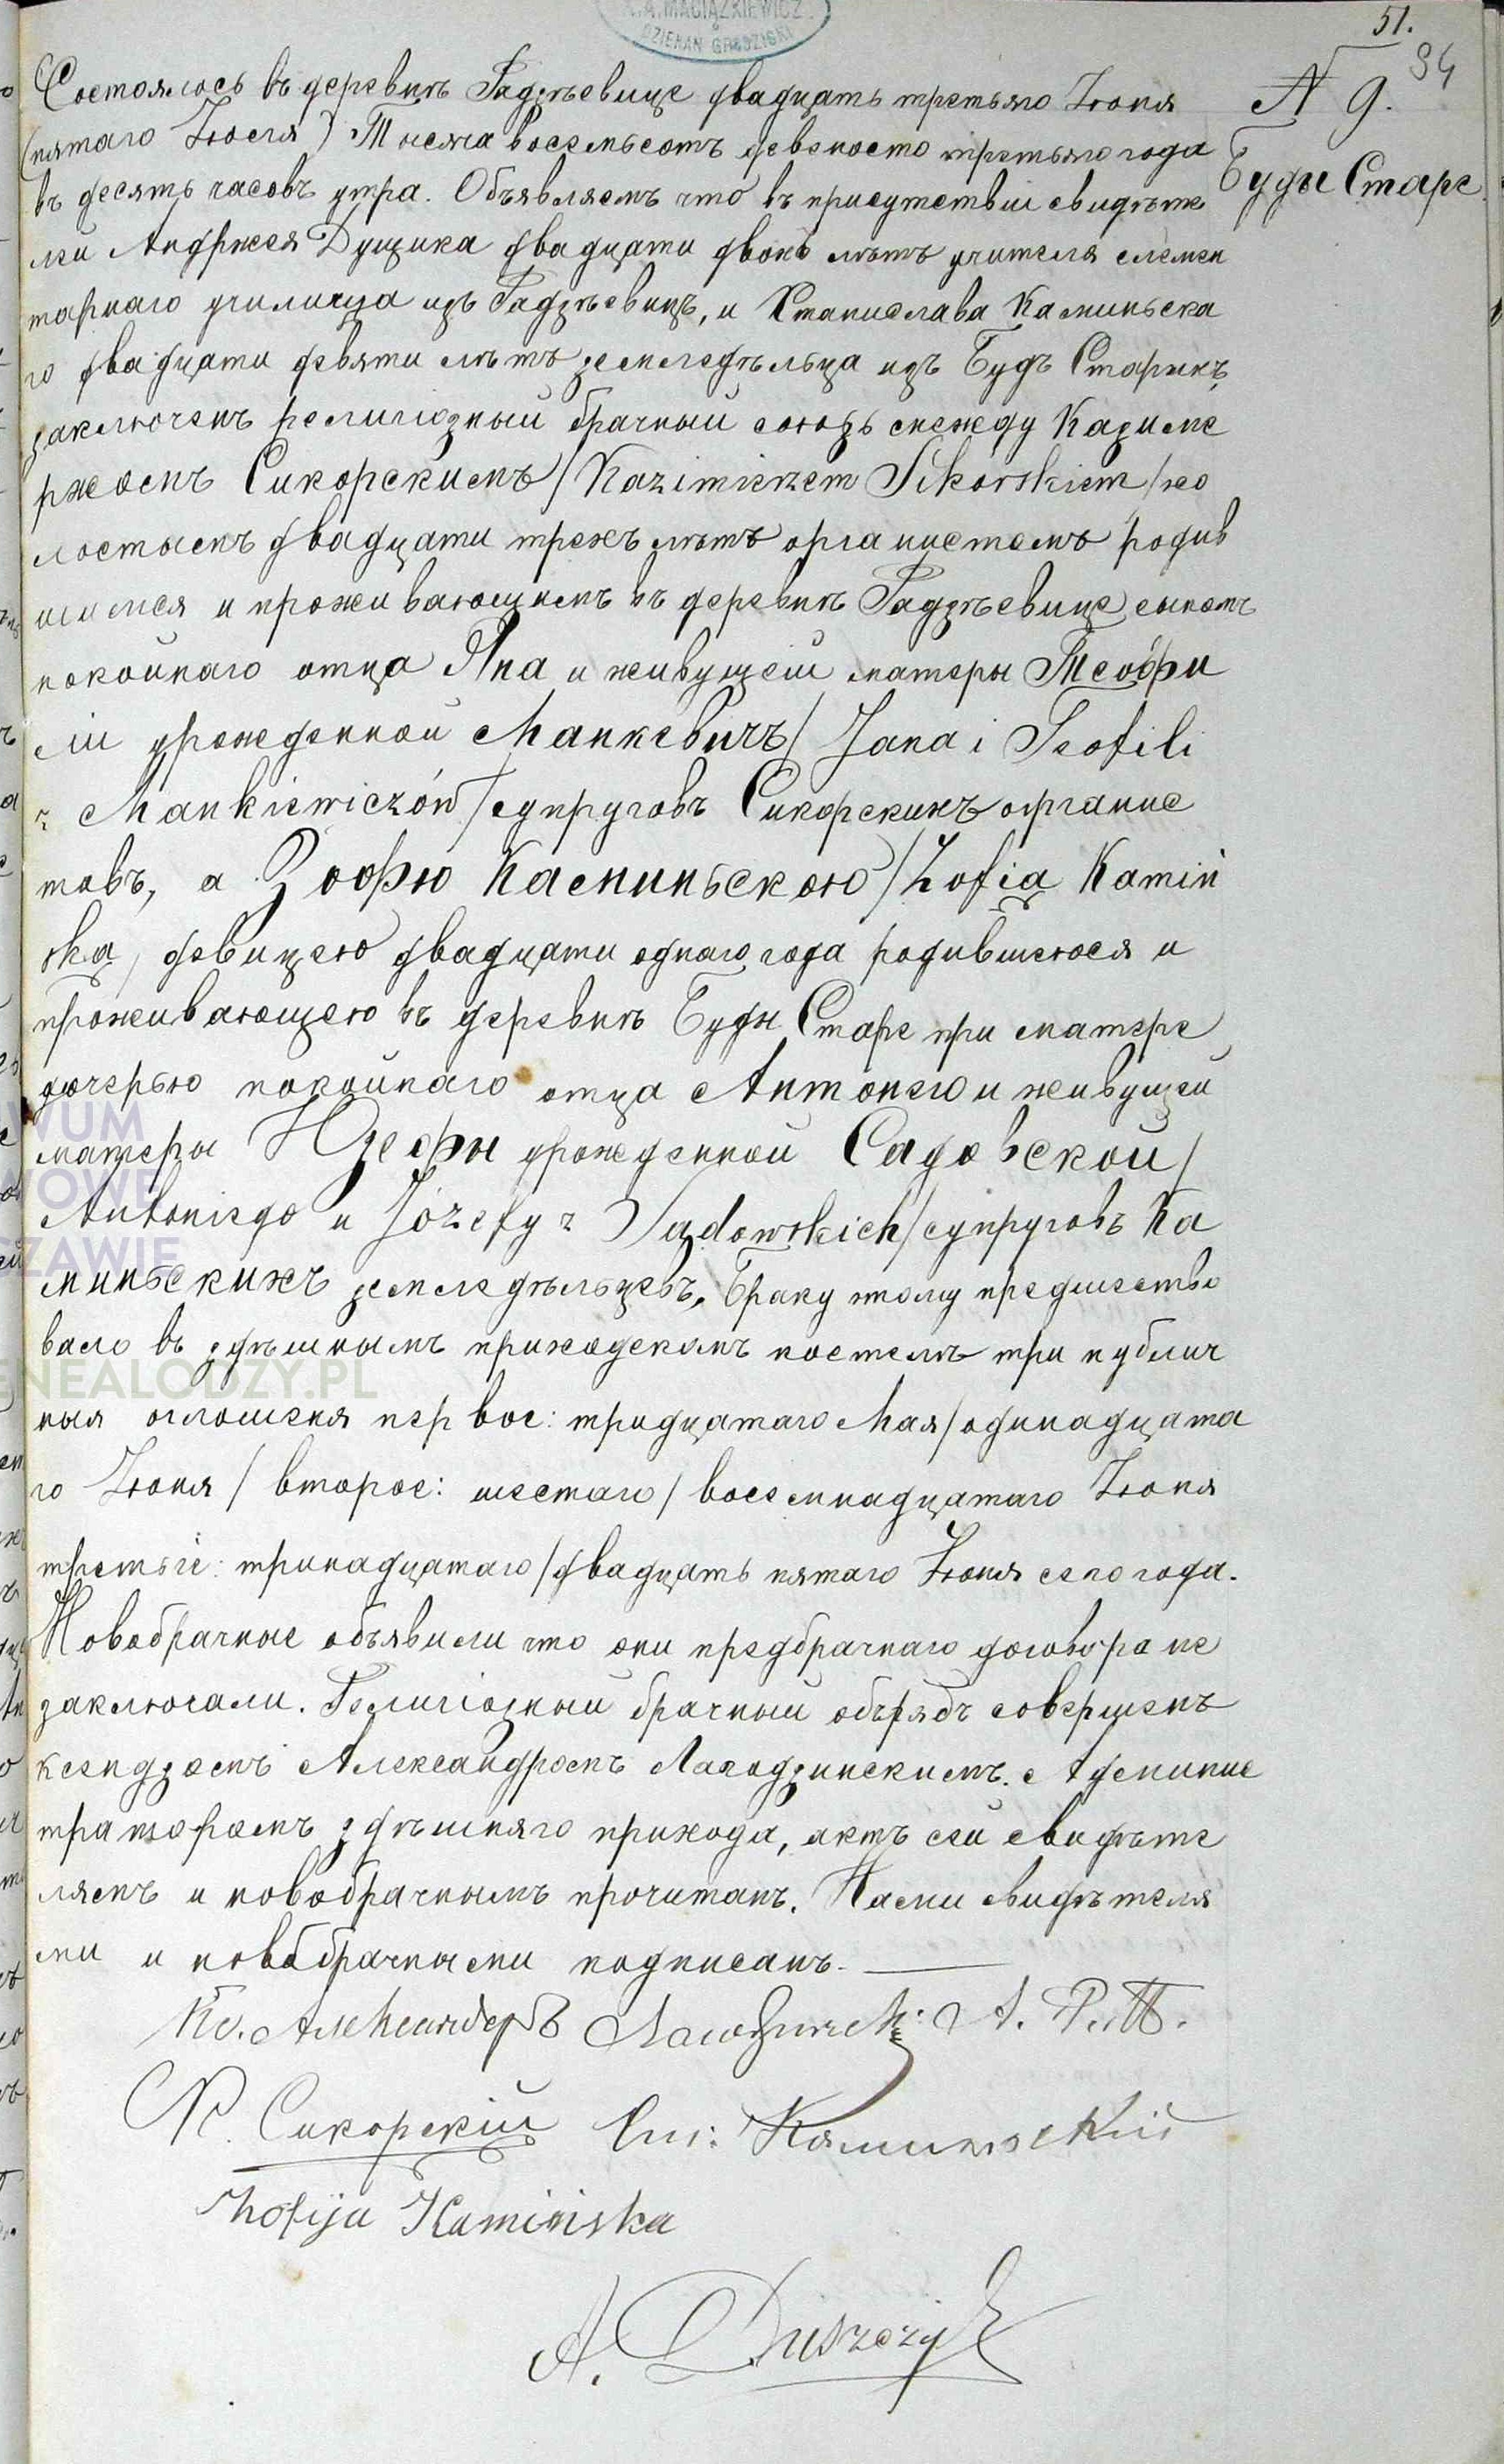 K.A. MACIĄŻKIEWICZ
DZIEKAN GRODZISKI
51.
94
N 9.
Буды Старе
Состоялось въ деревнѣ Радзѣевице двадцать третьяго Іюня
(пятаго Іюля) Тысяча восемьсотъ девеносто третьяго года
въ десять часовъ утра. Объявляемъ что въ присутствіи свидѣте
леи Андржея Дущика двадцати двохъ лѣтъ учителя елемен
тарнаго училища изъ Радзѣевицъ, и Станислава Каминьска
го двадцати девяти лѣтъ земледѣльца изъ Будъ Старыхъ,
заключенъ религіозный брачный союзъ между Казиме
ржомъ Сикорскимъ / Kazimierzem Sikorskiem / хо
лостымъ двадцати трехъ лѣтъ органистемъ родив
шимся и проживающимъ въ деревнѣ Радзѣевице сыномъ
покойнаго отца Яна и живущей матеры Теофи
ліи урожденной Манкевичъ / Jana i Teofili
z Mankiewiczów / супруговъ Сикорскихъ органис
товъ, а Зофю Каминьскою / Zofią Kamiń
ską / девицею двадцати однаго года родившеюся и
проживающею въ деревнѣ Буды Старе при матере
дочерью покойнаго отца Антонего и живущей
матеры Юзефы урожденной Садовской /
Antoniego и Józefy z Sadowskich / супруговъ Ка
миньскихъ земледѣльцевъ. Браку тому предшество
вало въ здѣшнымъ приходскомъ костелѣ три публич
ныя оглошеня первое: тридцатаго Мая / одинадцата
го Іюня / второе: шестаго / восемнадцатаго Іюня
третьіе: тринадцатаго / двадцать пятаго Іюня сего года.
Новобрачные объявили что они предбрачнаго договора не
заключали. Религіозный брачный обърядъ совершенъ
ксендзомъ Александромъ Лагодзинскимъ. Админис
траторомъ здѣшняго прихода, актъ сей свидѣте
лямъ и новобрачнымъ прочитанъ. Нами свидѣтеля
ми и новобрачными подписанъ.
Кс. Александеръ Лагодзинск: А. Р. П.
К. Сикорскій Ст: Каминьскій
Zofija Kamińska
A. Duszczyk
WUM
OWE
SZAWIE
GENEALODZY.PL